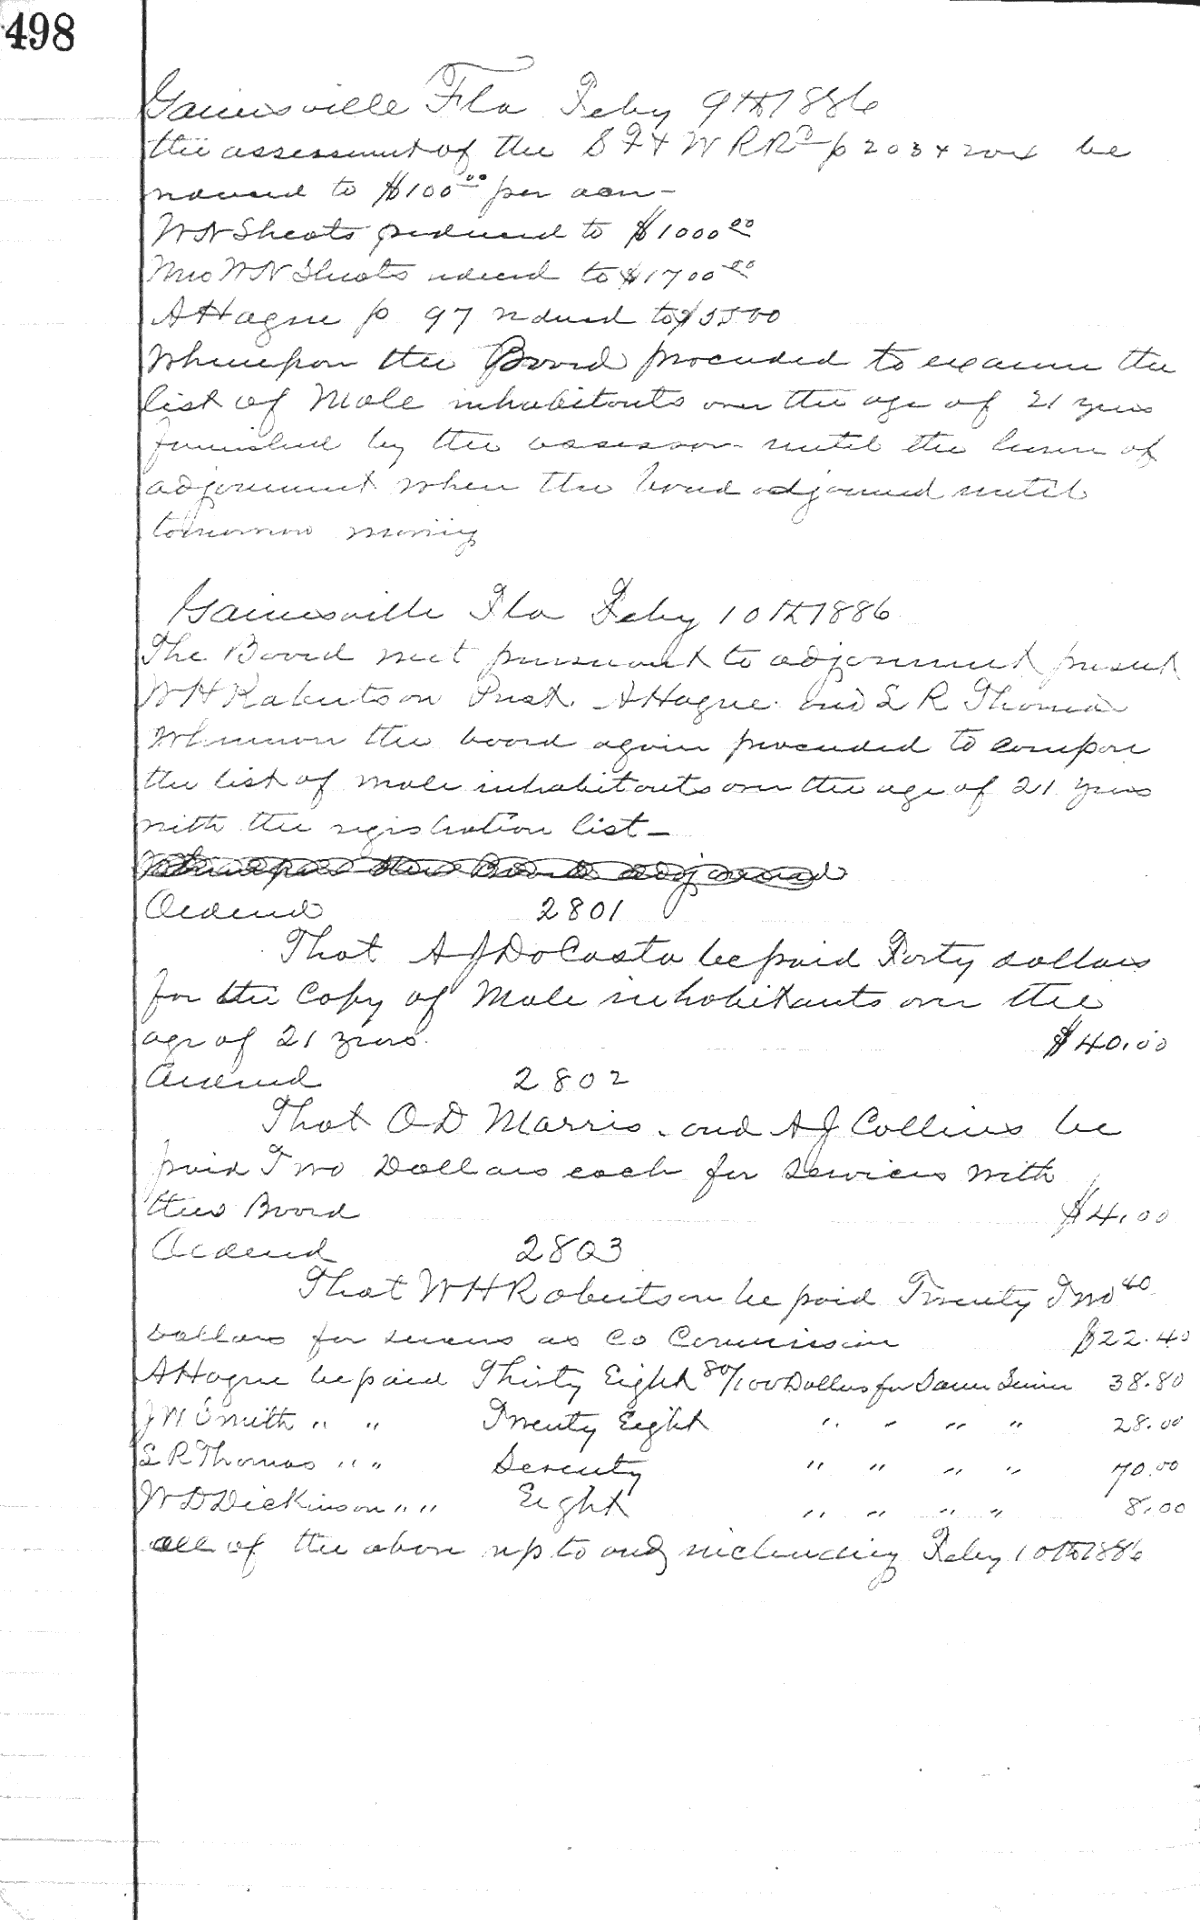 498
Gainesville Fla Feby 9th 1886
the assessment of the S F & W RR p 203 & 204 be
reduced to $100.00 per acre -
W N Sheats reduced to $1000.00
Mrs W N Sheats reduced to $1700.00
A Hague p 97 reduced to $5500
Whereupon the Board proceeded to examine the
list of Male inhabitants over the age of 21 years
furnished by the assessor until the hour of
adjournment when the board adjourned until
tomorrow morning
Gainesville Fla Feby 10th 1886
The Board met pursuant to adjournment present
W H Robertson Prest. A Hague and L R Thomas
Whereupon the board again proceeded to compare
the list of male inhabitants over the age of 21 years
with the registration list -
Whereupon the Board adjourned
Ordered 2801
That A J DaCosta be paid Forty dollars
for the Copy of Male inhabitants over the
age of 21 years. $40.00
Ordered 2802
That O D Morris. and A J Collins be
paid Two Dollars each for services with
this Board $4.00
Ordered 2803
That W H Robertson be paid Twenty Two 40
Dollars for services as Co Commission $22.40
A Hague be paid Thirty Eight 80/100 Dollars for Same Service 38.80
J W Smith " " Twenty Eight " " " " 28.00
L R Thomas " " Seventy " " " " 70.00
W D Dickinson " " Eight " " " " 8.00
all of the above up to and including Feby 10th 1886